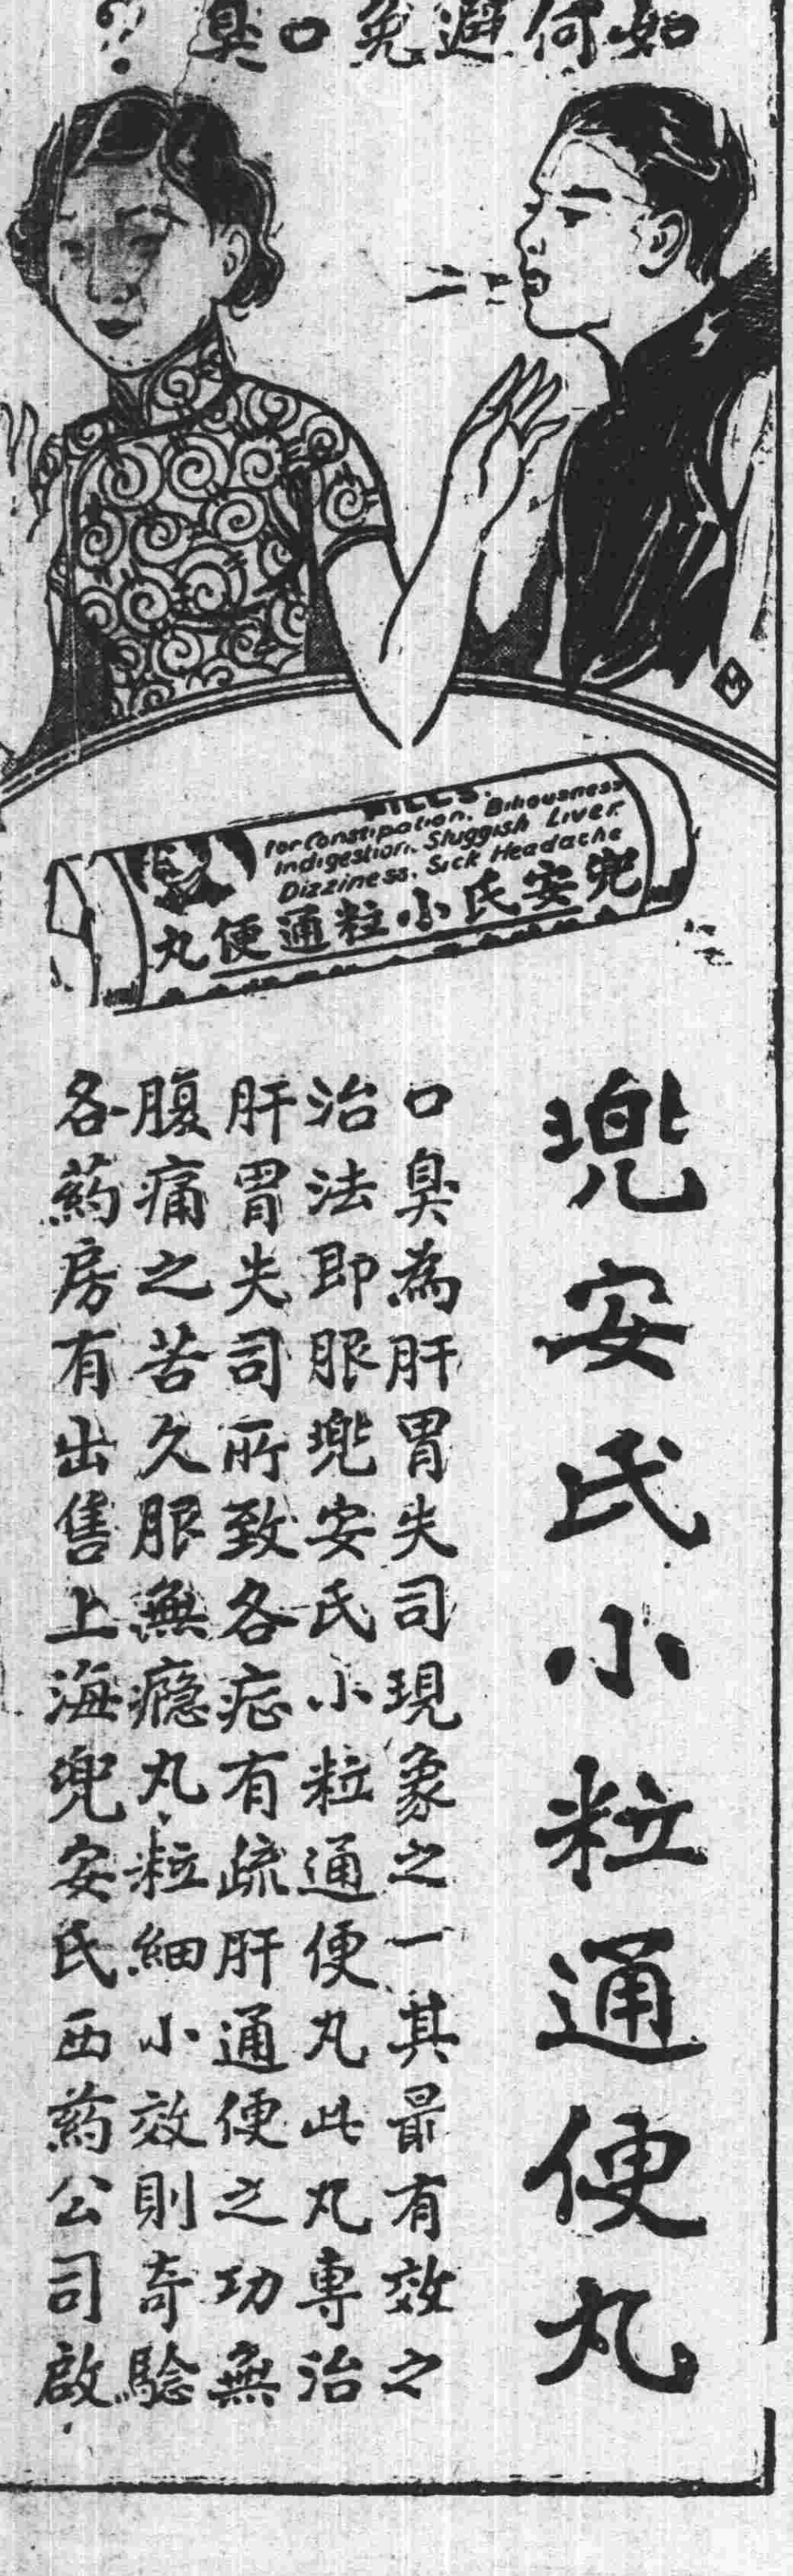 如何避免口臭?
PILLS.
for Constipation. Biliousness
Indigestion. Sluggish Liver.
Dizziness. Sick Headache
兜安氏小粒通便丸
兜安氏小粒通便丸
口臭為肝胃失司現象之一其最有效之
治法即服兜安氏小粒通便丸此丸專治
肝胃失司所致各症有疏肝通便之功無
腹痛之苦久服無瘾丸粒細小效則奇驗
各药房有出售上海兜安氏西药公司啟
M